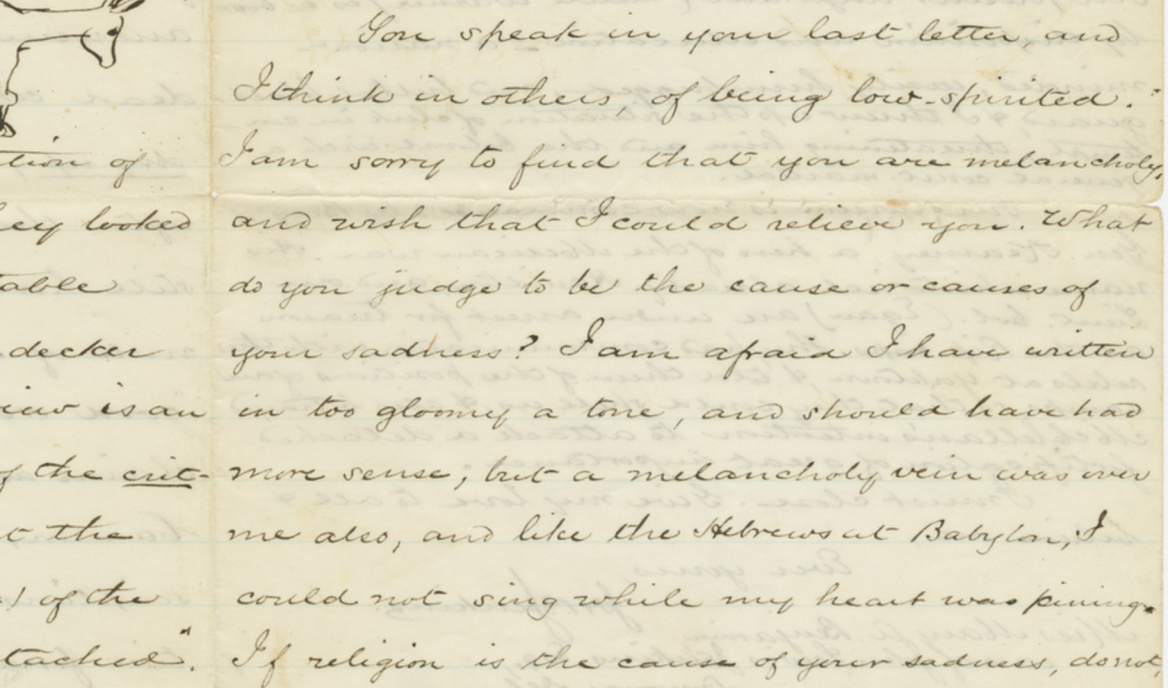 tion of
ey looked
able
decker
iew is an
f the crit-
t the
of the
tached".
You speak in your last letter, and
I think in others, of being low-spirited.
I am sorry to find that you are melancholy,
and wish that I could relieve you. What
do you judge to be the cause or causes of
your sadness? I am afraid I have written
in too gloomy a tone, and should have had
more sense, but a melancholy vein was over
me also, and like the Hebrews at Babylon, I
could not sing while my heart was pining.
If religion is the cause of your sadness, do not,